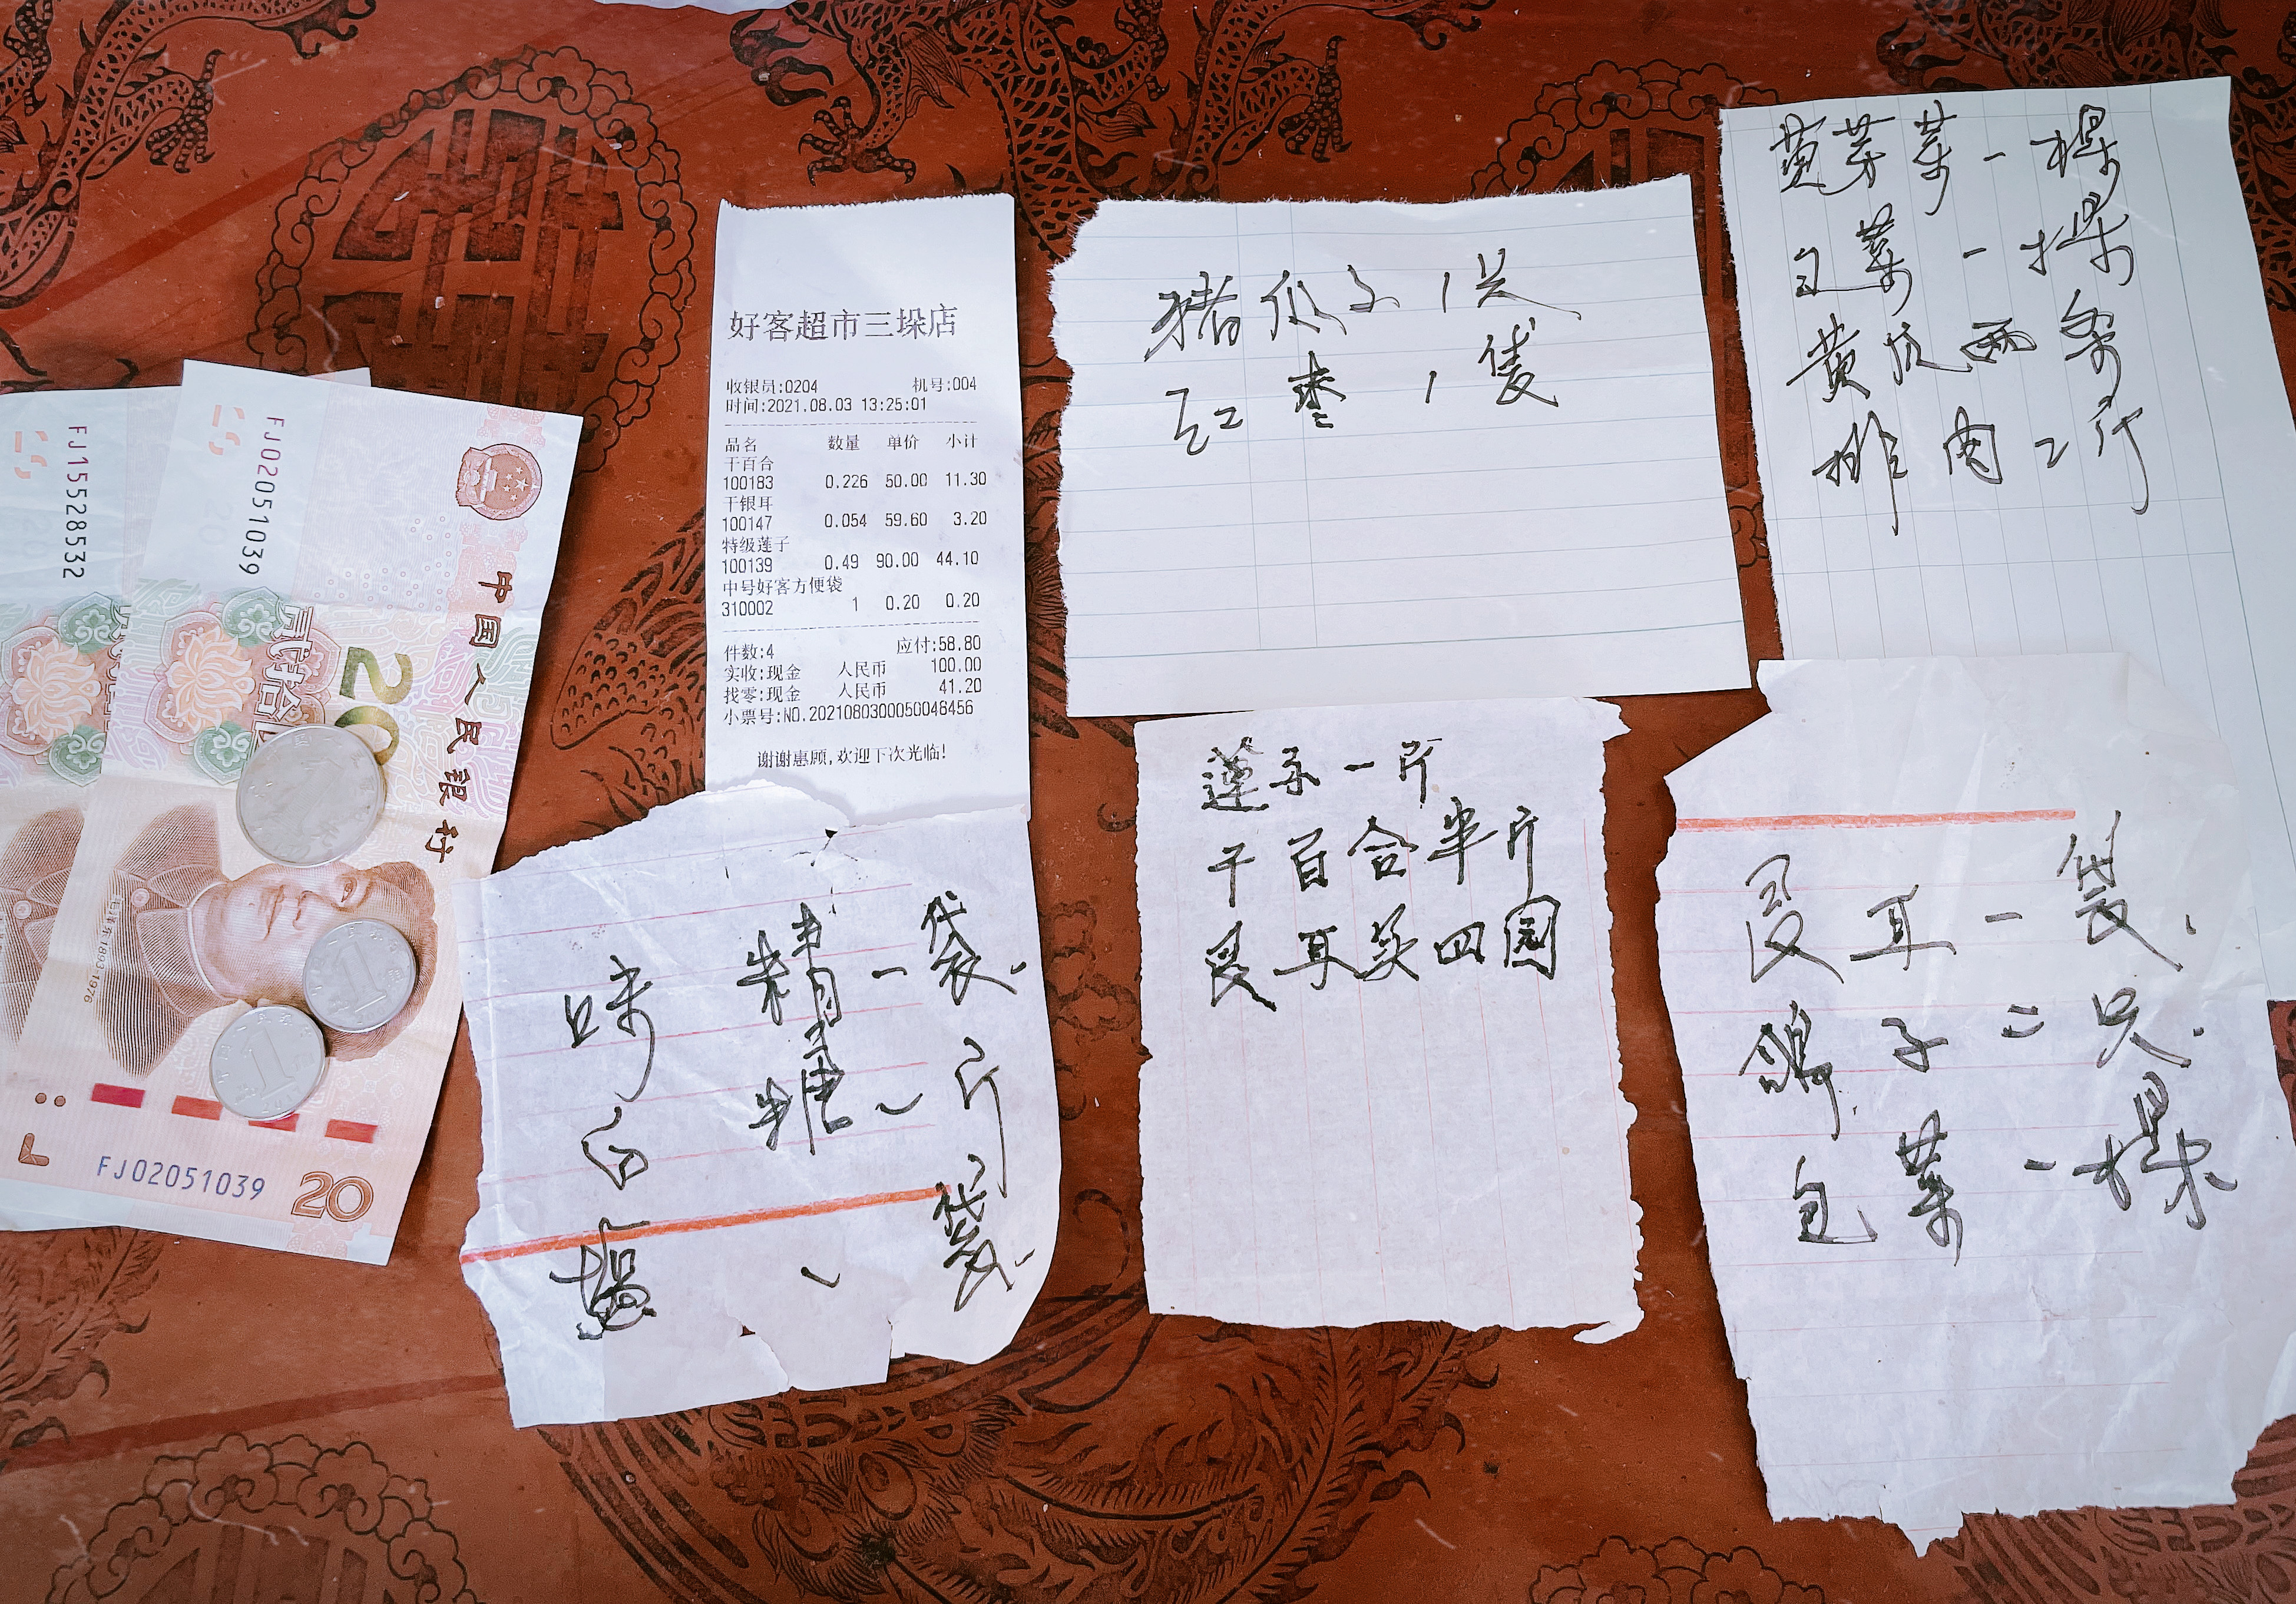 FJ15528532
FJ02051039
中国人民银行
贰拾
20
毛泽东1893-1976
1
1
FJ02051039
20
好客超市三垛店
收银员:0204 机号:004
时间:2021.08.03 13:25:01
品名 数量 单价 小计
干百合
100183 0.226 50.00 11.30
干银耳
100147 0.054 59.60 3.20
特级莲子
100139 0.49 90.00 44.10
中号好客方便袋
310002 1 0.20 0.20
件数:4 应付:58.80
实收:现金 人民币 100.00
找零:现金 人民币 41.20
小票号:NO.2021080300050048456
谢谢惠顾,欢迎下次光临!
味精一袋.
白糖一斤
一袋.
猪 子1只
红枣1
莲子一斤
干百合半斤
耳买四园
黄芽菜一棵
包菜一棵
黄瓜两条
排肉2斤
耳一袋.
鸽子二只.
包菜一棵